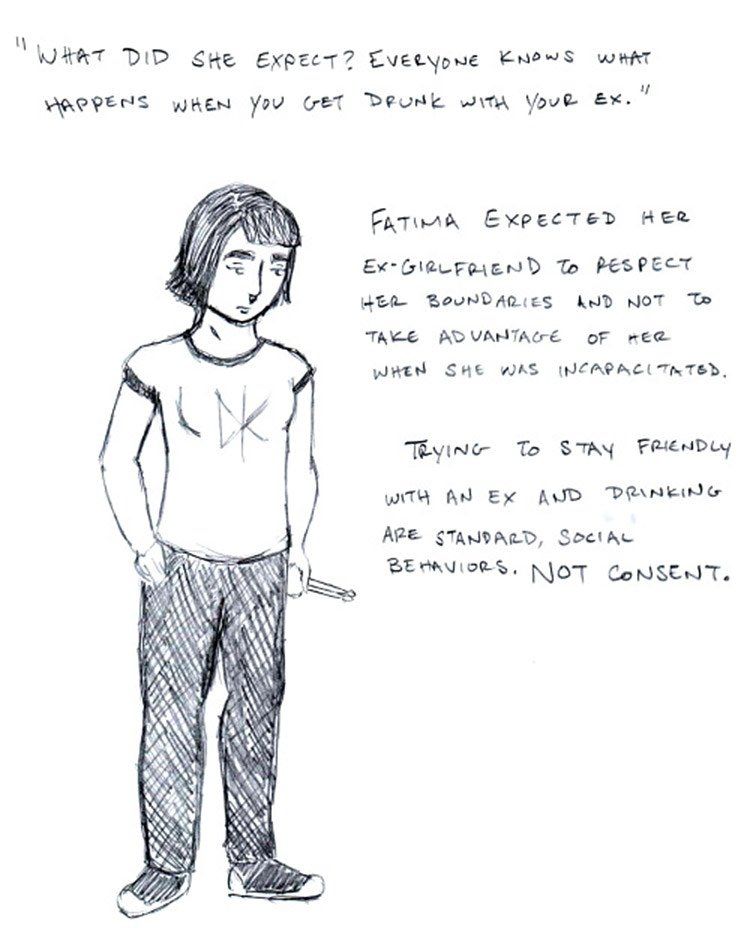 "WHAT DID SHE EXPECT? EVERYONE KNOWS WHAT
HAPPENS WHEN YOU GET DRUNK WITH YOUR EX."
FATIMA EXPECTED HER
EX-GIRLFRIEND TO RESPECT
HER BOUNDARIES AND NOT TO
TAKE ADVANTAGE OF HER
WHEN SHE WAS INCAPACITATED.
DK
TRYING TO STAY FRIENDLY
WITH AN EX AND DRINKING
ARE STANDARD, SOCIAL
BEHAVIORS. NOT CONSENT.